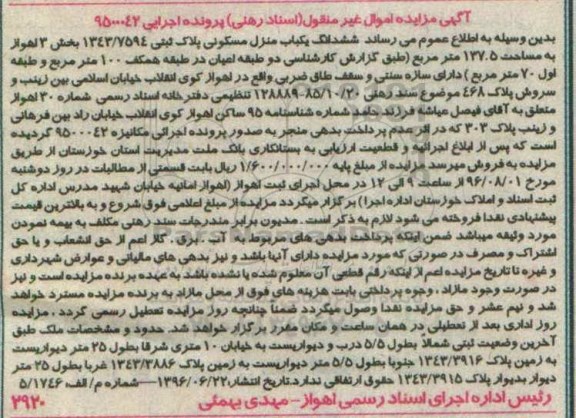 آگهی مزایده اموال غیر منقول(اسناد رهنی) پرونده اجرایی ۹۵۰۰۰۴۲
بدین وسیله به اطلاع عموم می رساند ششدانگ یکباب منزل مسکونی پلاک ثبتی ۱۳۴۳/۷۵۹۴ بخش ۳ اهواز
به مساحت ۱۳۷.۵ متر مربع (طبق گزارش کارشناسی دو طبقه اعیان در طبقه همکف ۱۰۰ متر مربع و طبقه
اول ۷۰ متر مربع ) دارای سازه سنتی و سقف طاق ضربی واقع در اهواز کوی انقلاب خیابان اسلامی بین زینب و
سروش پلاک ۴۶۸ موضوع سند رهنی ۱۲۸۸۸۹-۸۵/۱۰/۲۰ تنظیمی دفتر خانه اسناد رسمی شماره ۳۰ اهواز
متعلق به آقای فیصل عیاشه فرزند حامد شماره شناسنامه ۹۵ ساکن اهواز کوی انقلاب خیابان راد بین فرهانی
و زینب پلاک ۳۰۳ که در اثر عدم پرداخت بدهی منجر به صدور پرونده اجرائی مکانیزه ۹۵۰۰۰۴۲ گردیده
است که پس از ابلاغ اجرائیه و قطعیت ارزیابی به بستانکاری بانک ملت مدیریت استان خوزستان از طریق
مزایده به فروش میرسد مزایده از مبلغ پایه ۱/۶۰۰/۰۰۰/۰۰۰ ریال بابت قسمتی از مطالبات در روز دوشنبه
مورخ ۹۶/۰۸/۰۱ از ساعت ۹ الی ۱۲ در محل اجرای ثبت اهواز (اهواز امانیه خیابان شهید مدرس اداره کل
ثبت اسناد و املاک خوزستان اداره اجرا) برگزار میگردد مزایده از مبلغ اعلامی فوق شروع و به بالاترین قیمت
پیشنهادی نقدا فروخته می شود لازم به ذکر است . مدیون برابر مندرجات سند رهنی مکلف به بیمه نمودن
مورد وثیقه میباشد ضمن اینکه پرداخت بدهی های مربوط به آب . برق . گاز اعم از حق انشعاب و یا حق
اشتراک و مصرف در صورتی که مورد مزایده دارای آنها باشد و نیز بدهی های مالیاتی و عوارض شهرداری
و غیره تا تاریخ مزایده اعم از اینکه رقم قطعی آن معلوم شده یا نشده باشد به عهده برنده مزایده است و نیز
در صورت وجود مازاد ، وجوه پرداختی بابت هزینه های فوق از محل مازاد به برنده مزایده مسترد خواهد
شد و نیم عشر و حق مزایده نقدا وصول میگردد ضمنا چنانچه روز مزایده تعطیل رسمی گردد ، مزایده
روز اداری بعد از تعطیلی در همان ساعت و مکان مقرر برگزار خواهد شد. حدود و مشخصات ملک طبق
آخرین وضعیت ثبتی شمالا بطول ۵/۵ درب و دیواریست به خیابان ۱۰ متری شرقا بطول ۲۵ متر دیواریست
به زمین پلاک ۱۳۴۳/۳۹۱۶ جنوبا بطول ۵/۵ متر دیواریست به زمین پلاک ۱۳۴۳/۳۸۸۶ غربا بطول ۲۵ متر
دیوار بدیوار پلاک ۱۳۴۳/۳۹۱۵ حقوق ارتفاقی ندارد.تاریخ انتشار:۱۳۹۶/۰۶/۲۲—شماره م/الف: ۵/۱۷۴۶
رئیس اداره اجرای اسناد رسمی اهواز- مهدی بهمئی ۲۹۲۰